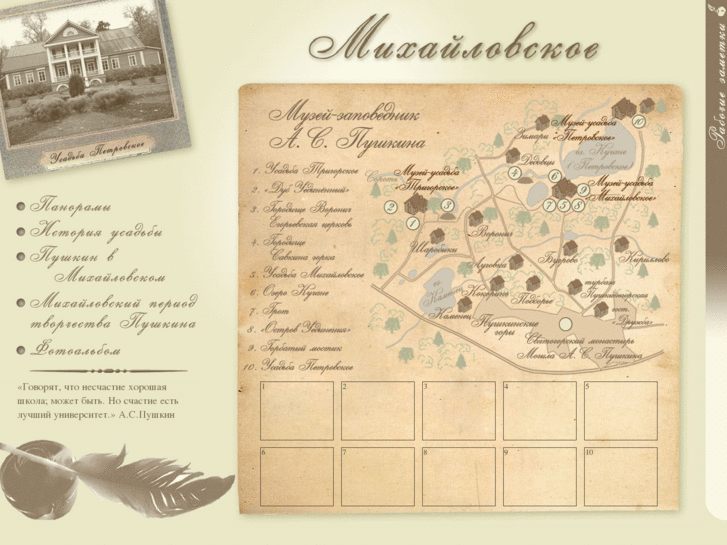 Михайловское
Усадьба Петровское
Рабочие заметки
Панорамы
История усадьбы
Пушкин в
Михайловском
Михайловский период
творчества Пушкина
Фотоальбом
«Говорят, что несчастие хорошая
школа; может быть. Но счастие есть
лучший университет.» А.С.Пушкин
Музей-заповедник
А. С. Пушкина
1. Усадьба Тригорское
2. «Дуб Уединенный»
3. Городище Воронич
Егорьевская церковь
4. Городище
Савкина горка
5. Усадьба Михайловское
6. Озеро Кучане
7. Грот
8. «Остров Уединения»
9. Горбатый мостик
10. Усадьба Петровское
Музей-усадьба
«Петровское»
10
Зимари
оз. Кучане
(Петровское)
Дедовцы
Музей-усадьба
«Тригорское»
4
6
9
Музей-усадьба
«Михайловское»
2
3
7
5
8
1
Воронич
Шаробыки
Бугрово
Кириллово
оз.
Каменец
Каменец
Кокорино
Подкорье
турбаза
Пушкиногорская
гост.
Дружба
Пушкинские
горы
Святогорский монастырь
Могила А. С. Пушкина
1
2
3
4
5
6
7
8
9
10